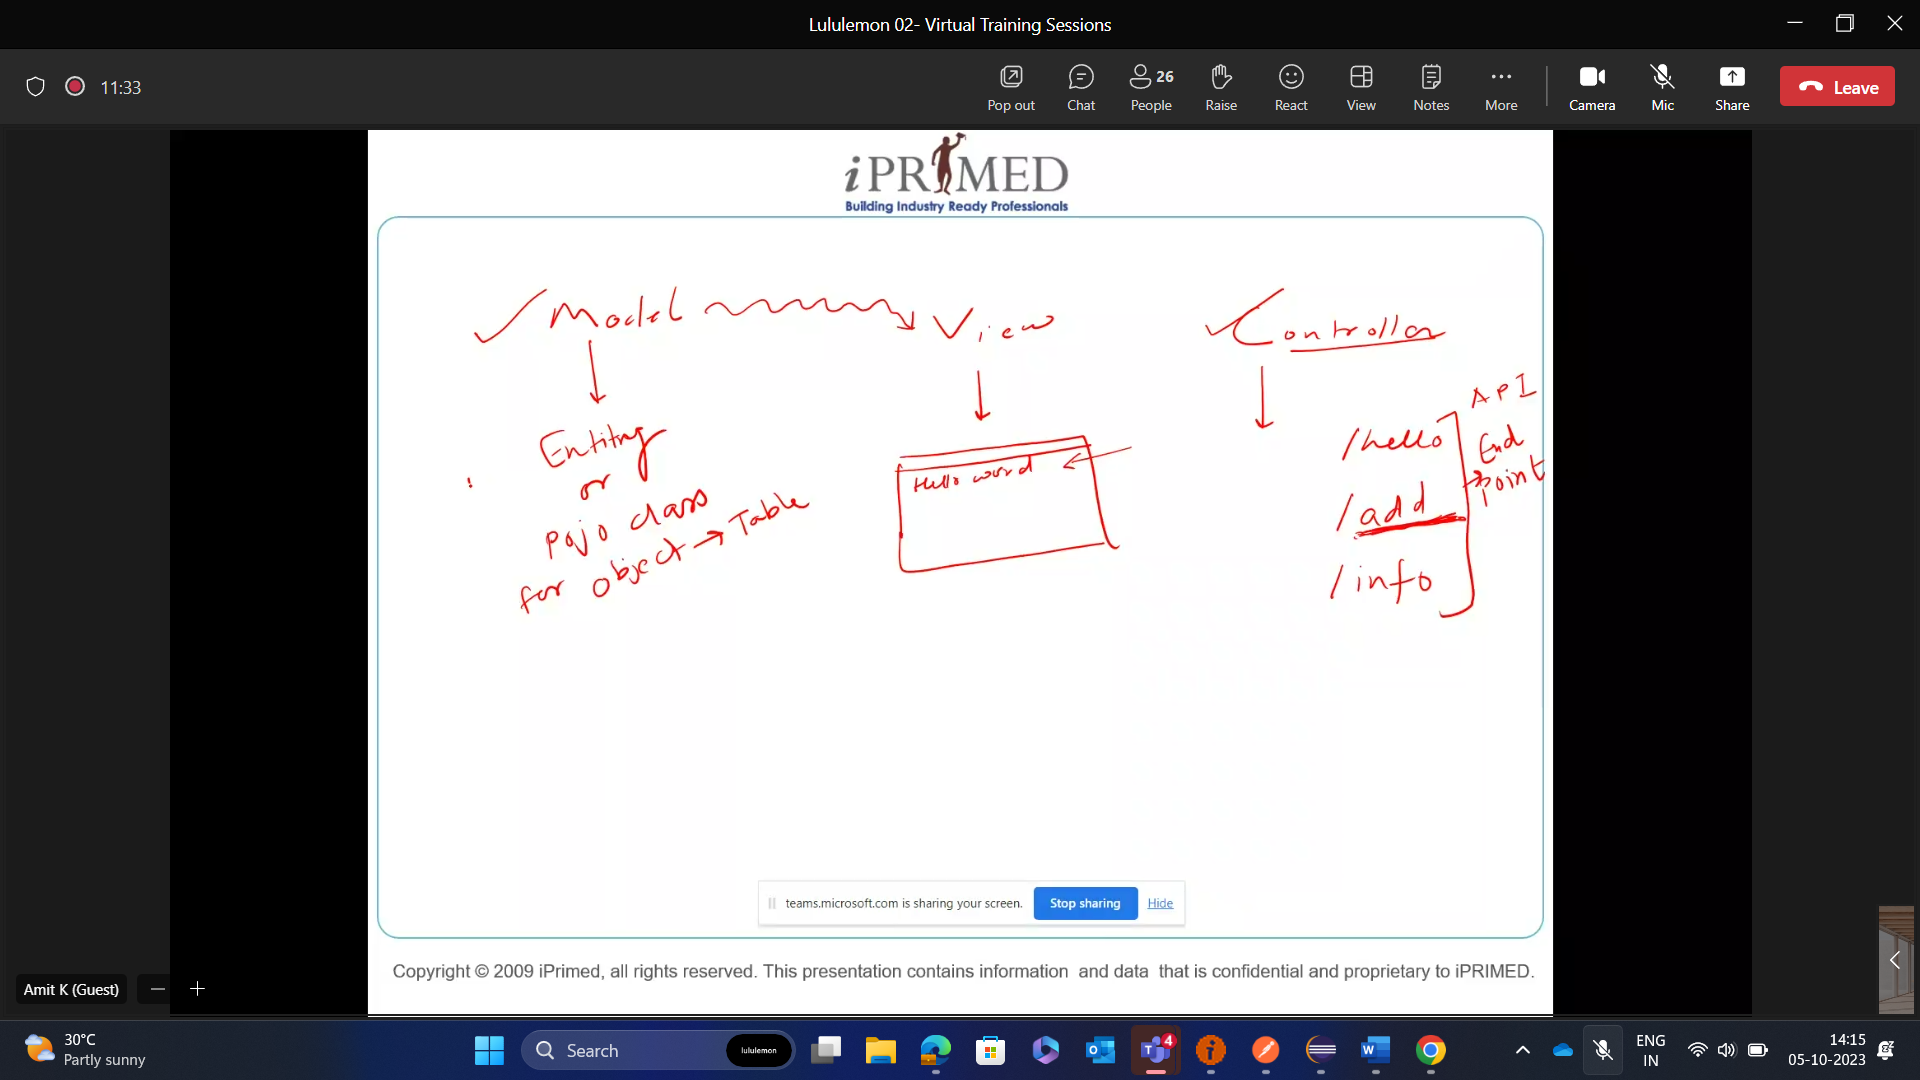 Lululemon 02- Virtual Training Sessions
11:33
Pop out
Chat
26
People
Raise
React
View
Notes
More
Camera
Mic
Share
Leave
iPRIMED
Building Industry Ready Professionals
Model View Controller
Entity
or
Pojo class
for object → Table
Hello word
/hello
/add
/info
API
End
Point
teams.microsoft.com is sharing your screen.
Stop sharing
Hide
Copyright © 2009 iPrimed, all rights reserved. This presentation contains information and data that is confidential and proprietary to iPRIMED.
Amit K (Guest)
30°C
Partly sunny
Search
lululemon
4
ENG
IN
14:15
05-10-2023